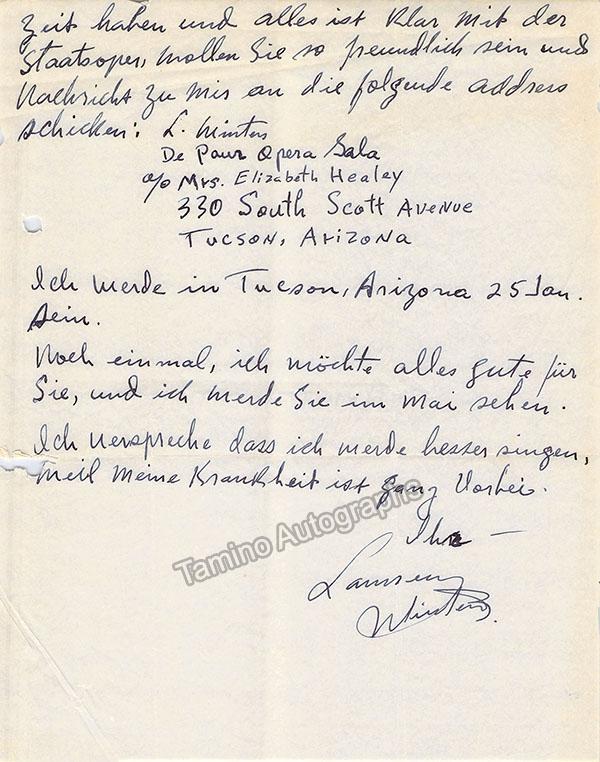 Zeit haben und alles ist Klar mit der
Staatsoper, wollen Sie so freundlich sein und
Nachricht zu mir an die folgende address
schicken: L. Winters
De Paur Opera Gala
c/o Mrs. Elizabeth Healey
330 South Scott Avenue
Tucson, Arizona
Ich werde in Tucson, Arizona 25 Jan.
sein.
Noch einmal, ich möchte alles gute für
Sie, und ich werde Sie im Mai sehen.
Ich verspreche dass ich werde besser singen,
weil meine Krankheit ist ganz Vorbei.
Ihr —
Lawrence
Winters.
Tamino Autographs